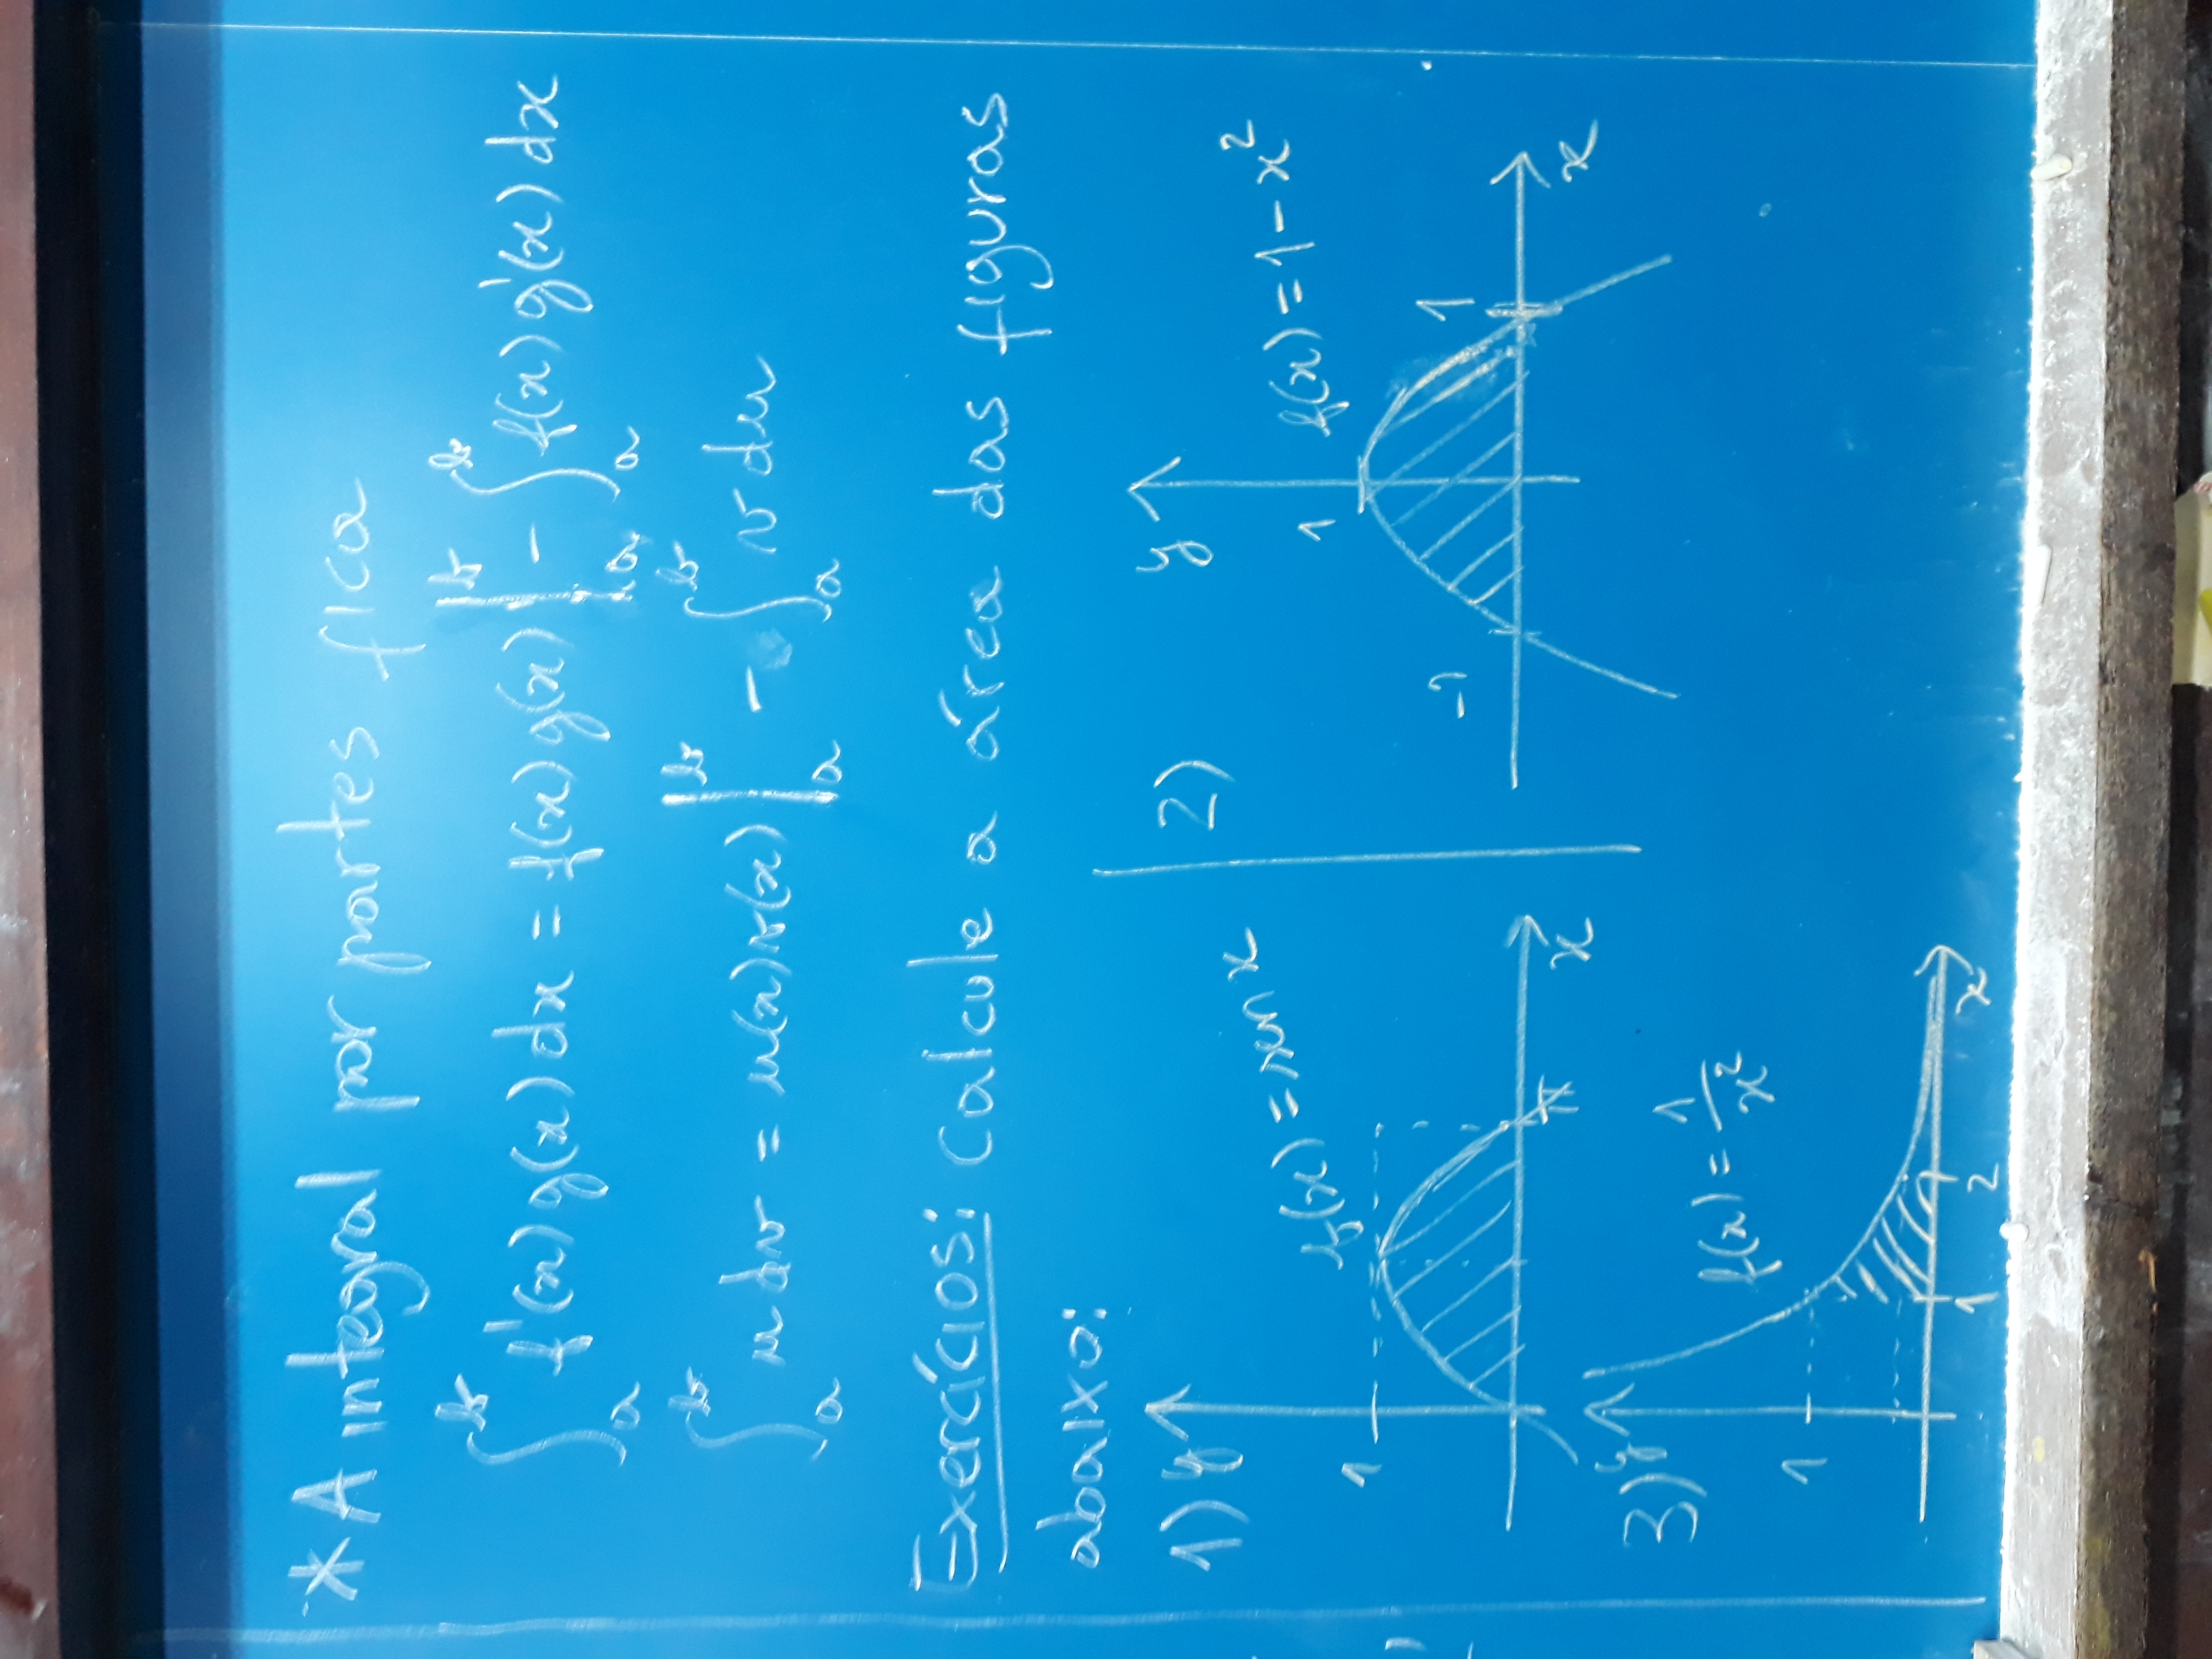 * A integral por partes fica
∫ₐᵇ f'(x) g(x) dx = f(x) g(x) |ₐᵇ - ∫ₐᵇ f(x) g'(x) dx
∫ₐᵇ u dv = u(x) v(x) |ₐᵇ - ∫ₐᵇ v du
Exercícios: Calcule a área das figuras
abaixo:
1) y
f(x) = sen x
1
π
x
2)
y
f(x) = 1 - x²
1
-1
1
x
3) y
f(x) = 1/x²
1
1 2 x